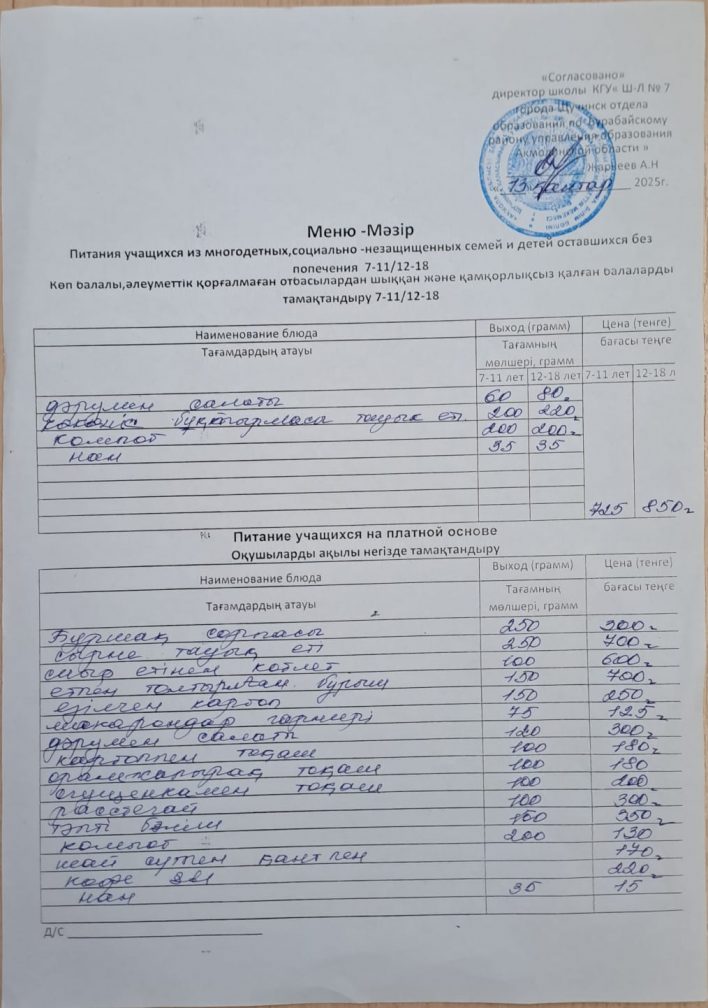 «Согласовано»
директор школы КГУ« Ш-Л № 7
города Щучинск отдела
образования по Бурабайскому
району управления образования
Акмолинской области »
Жарнеев А.Н
13 қаңтар 2025г.
Меню -Мәзір
Питания учащихся из многодетных,социально -незащищенных семей и детей оставшихся без
попечения 7-11/12-18
Көп балалы,әлеуметтік қорғалмаған отбасылардан шыққан және қамқорлықсыз қалған балаларды
тамақтандыру 7-11/12-18
Наименование блюда Выход (грамм) Цена (тенге)
Тағамдардың атауы Тағамның бағасы теңге
мөлшері, грамм
7-11 лет 12-18 лет 7-11 лет 12-18 л
дәрумен салаты 60 80г
көкөніс бұқтырмасы тауық еті 200 220г
компот 200 200г
нан 35 35
725 850г
Питание учащихся на платной основе
Оқушыларды ақылы негізде тамақтандыру
Наименование блюда Выход (грамм) Цена (тенге)
Тағамдардың атауы Тағамның бағасы теңге
мөлшері, грамм
Бұршақ сорпасы 250 300г
сырне тауық еті 250 700г
сиыр етінен котлет 100 600г
етпен толтырылған бұрыш 150 700г
езілген картоп 150 250г
макарондар гарнирі 75 125г
дәрумен салаты 120 300г
картоппен тоқаш 100 180г
орамжапырақ тоқаш 100 180
сгущенкамен тоқаш 100 200
расстегай 100 300г
тәтті бәліш 150 350г
компот 200 130
шай сүтпен қантпен 170г
кофе 3в1 220г
нан 35 15
Д/С